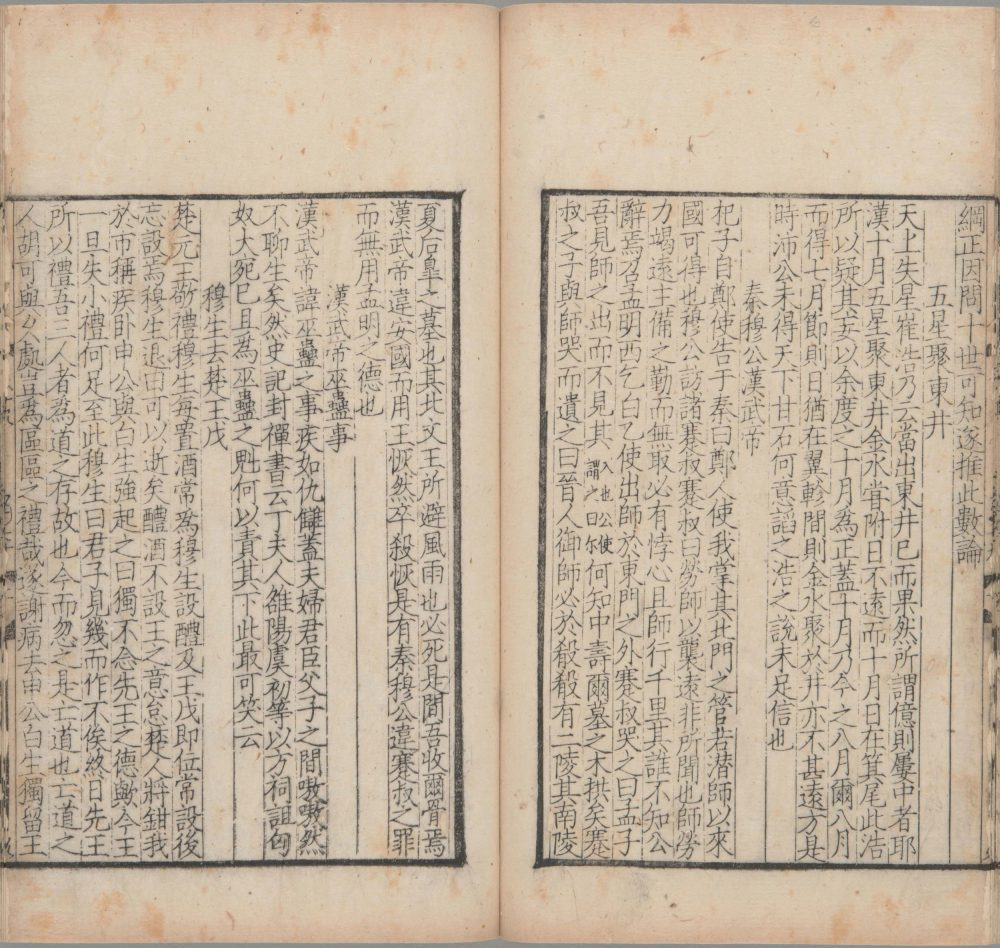 綱正因問十世可知遂推此數論
五星聚東井
天上失星崔浩乃云當出東井已而果然所謂億則屢中者耶
漢十月五星聚東井金水甞附日不遠而十月日在箕尾此浩
所以疑其妄以余度之十月為正蓋十月乃今之八月爾八月
而得七月節則日猶在翼軫間則金水聚於井亦不甚遠方是
時沛公未得天下甘石何意諂之浩之說未足信也
秦穆公漢武帝
杞子自鄭使告于秦曰鄭人使我掌其北門之管若潜師以來
國可得也穆公訪諸蹇叔蹇叔曰勞師以襲遠非所聞也師勞
力竭遠主備之勤而無取必有悖心且師行千里其誰不知公
辭焉召孟明西乞白乙使出師於東門之外蹇叔哭之曰孟子
吾見師之出而不見其入也公使謂之曰尔何知中壽爾墓之木拱矣蹇
叔之子與師哭而遺之曰晉人御師必於殽殽有二陵其南陵
夏后皐之墓也其北文王所避風雨也必死是間吾收爾骨焉
漢武帝違安國而用王恢然卒殺恢是有秦穆公違蹇叔之罪
而無用孟明之德也
漢武帝巫蠱事
漢武帝諱巫蠱之事疾如仇讎蓋夫婦君臣父子之間嗷嗷然
不聊生矣然史記封禪書云丁夫人雒陽虞初等以方祠詛匈
奴大宛已且為巫蠱之魁何以責其下此最可笑云
穆生去楚王戊
楚元王敬禮穆生每置酒常為穆生設醴及王戊即位常設後
忘設焉穆生退曰可以逝矣醴酒不設王之意怠楚人將鉗我
於市稱疾卧申公與白生強起之曰獨不念先王之德歟今王
一旦失小禮何足至此穆生曰君子見幾而作不俟終日先王
所以禮吾三人者為道之存故也今而忽之是亡道也亡道之
人胡可與久處豈為區區之禮哉遂謝病去申公白生獨留王